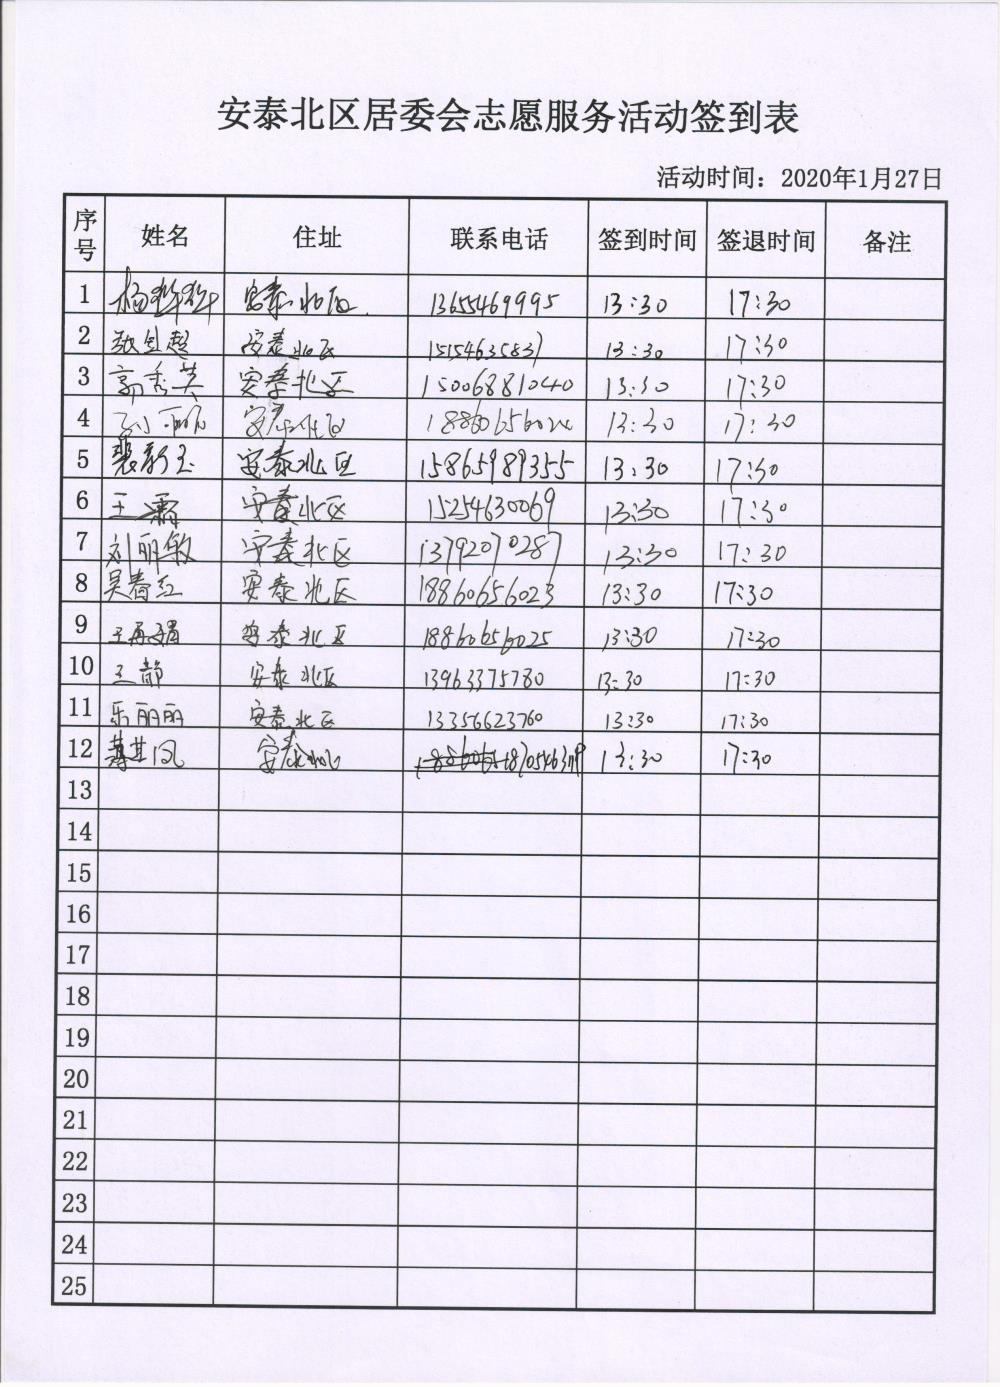 安泰北区居委会志愿服务活动签到表
活动时间：2020年1月27日
序号 姓名 住址 联系电话 签到时间 签退时间 备注
1 杨 安泰北区 13655469995 13:30 17:30
2 超 安泰北区 15154635837 13:30 17:30
3 郭秀英 安泰北区 15006881040 13:30 17:30
4 孙丽 安泰北区 13:30 17:30
5 裴新玉 安泰北区 15865989355 13:30 17:30
6 王霜 安泰北区 15254630069 13:30 17:30
7 刘丽敏 安泰北区 13792070287 13:30 17:30
8 吴春红 安泰北区 18860656023 13:30 17:30
9 王再娟 安泰北区 18860656025 13:30 17:30
10 王静 安泰北区 13963375780 13:30 17:30
11 乐丽丽 安泰北区 13356623760 13:30 17:30
12 凤 安泰北区 13:30 17:30
13
14
15
16
17
18
19
20
21
22
23
24
25